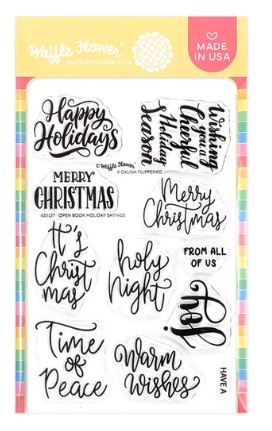 Waffle Flower
WAFFLEFLOWER.COM
MADE
IN USA
Happy
Holidays
Wishing
you a
Cheerful
Holiday
Season
© Waffle Flower
X GALINA FILIPPENKO
MERRY
CHRISTMAS
422127 OPEN BOOK HOLIDAY SAYINGS
Merry
Christmas
It's
Christ
mas
holy
night
FROM ALL
OF US
Joy
Time
of
Peace
Warm
Wishes
HAVE A